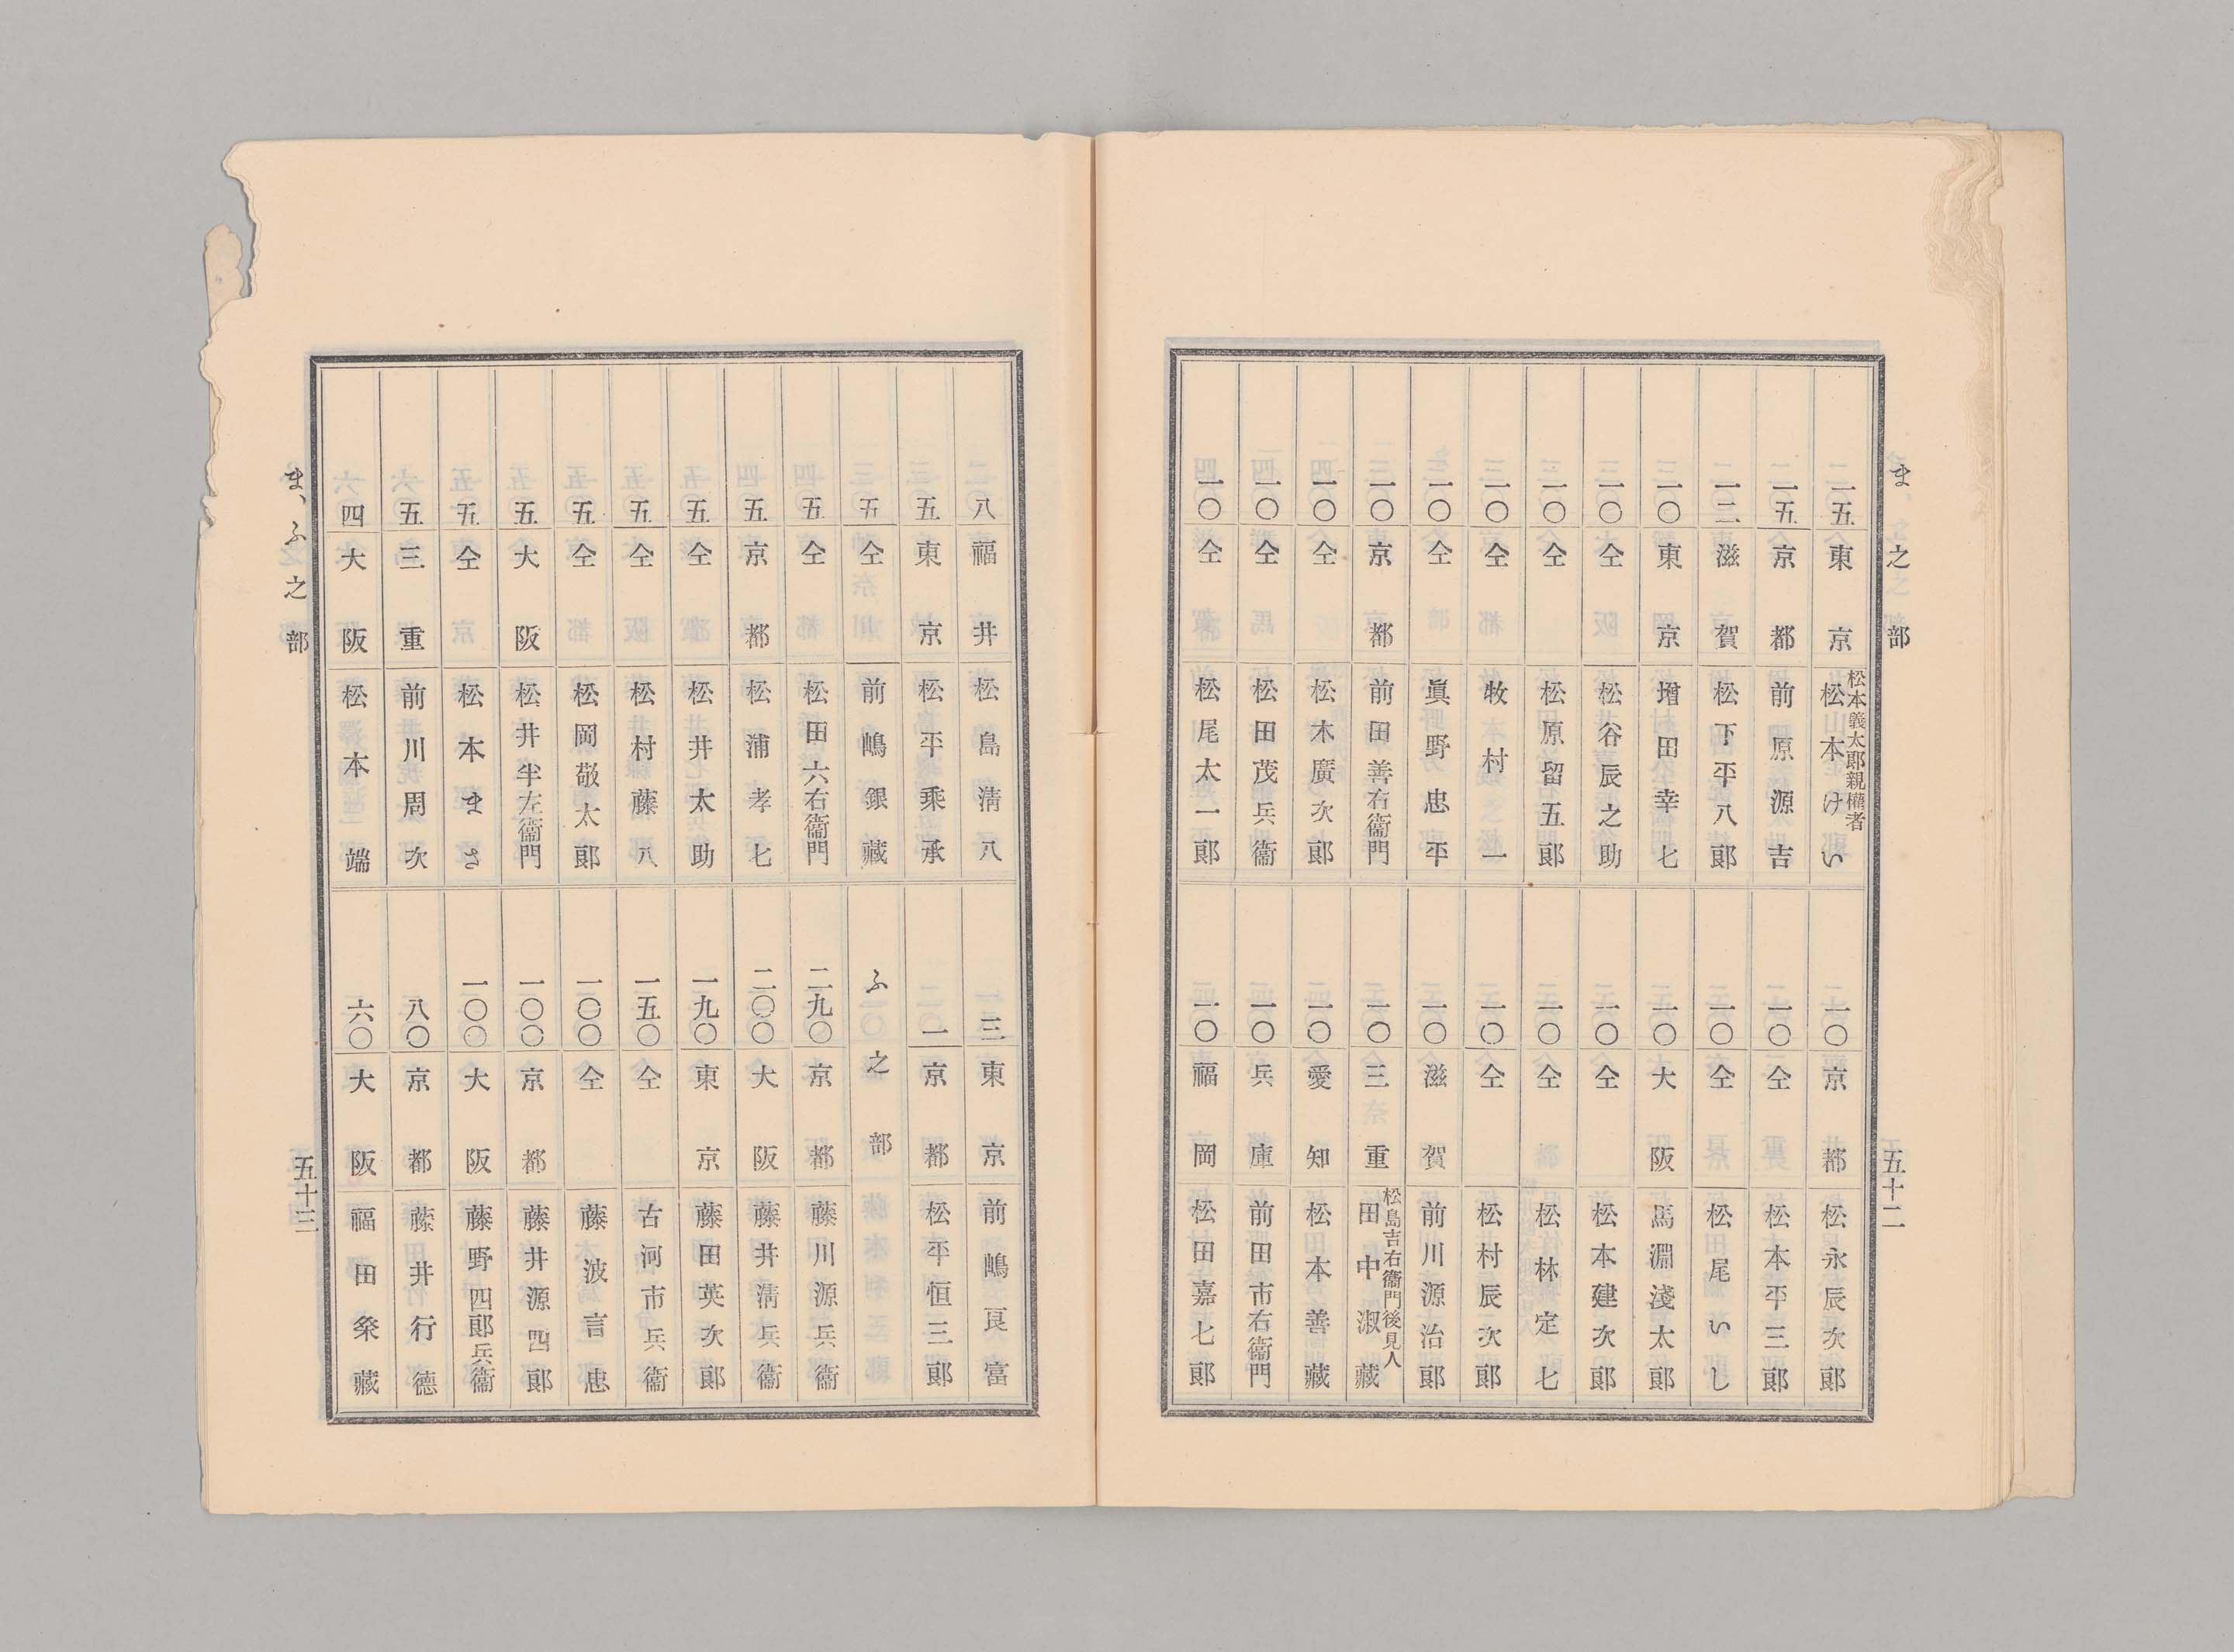 ま之部
五十二
一五 東京 松本義太郎親權者 松本けい
一五 京都 前原源吉
一二 滋賀 松下平八郎
一〇 東京 增田幸七
一〇 仝 松谷辰之助
一〇 仝 松原留五郎
一〇 仝 牧村一
一〇 仝 眞野忠平
一〇 京都 前田善右衞門
一〇 仝 松木廣次郎
一〇 仝 松田茂兵衞
一〇 仝 松尾太一郎
一〇 京都 松永辰次郎
一〇 仝 松本平三郎
一〇 仝 松尾いし
一〇 大阪 馬淵淺太郎
一〇 仝 松本建次郎
一〇 仝 松林定七
一〇 仝 松村辰次郎
一〇 滋賀 前川源治郎
一〇 三重 松島吉右衞門後見人 田中淑藏
一〇 愛知 松本善藏
一〇 兵庫 前田市右衞門
一〇 福岡 松田嘉七郎
八 福井 松島淸八
五 東京 松平乘承
五 仝 前嶋銀藏
五 仝 松田六右衞門
五 京都 松浦孝七
五 仝 松井太助
五 仝 松村藤八
五 仝 松岡敬太郎
五 大阪 松井半左衞門
五 仝 松本まさ
五 三重 前川周次
四 大阪 松本端
三 東京 前嶋良富
一 京都 松平恒三郎
ふ之部
二九〇 京都 藤川源兵衞
二〇〇 大阪 藤井淸兵衞
一九〇 東京 藤田英次郎
一五〇 仝 古河市兵衞
一〇〇 仝 藤波言忠
一〇〇 京都 藤井源四郎
一〇〇 大阪 藤野四郎兵衞
八〇 京都 藤井行德
六〇 大阪 福田粂藏
ま、ふ之部
五十三